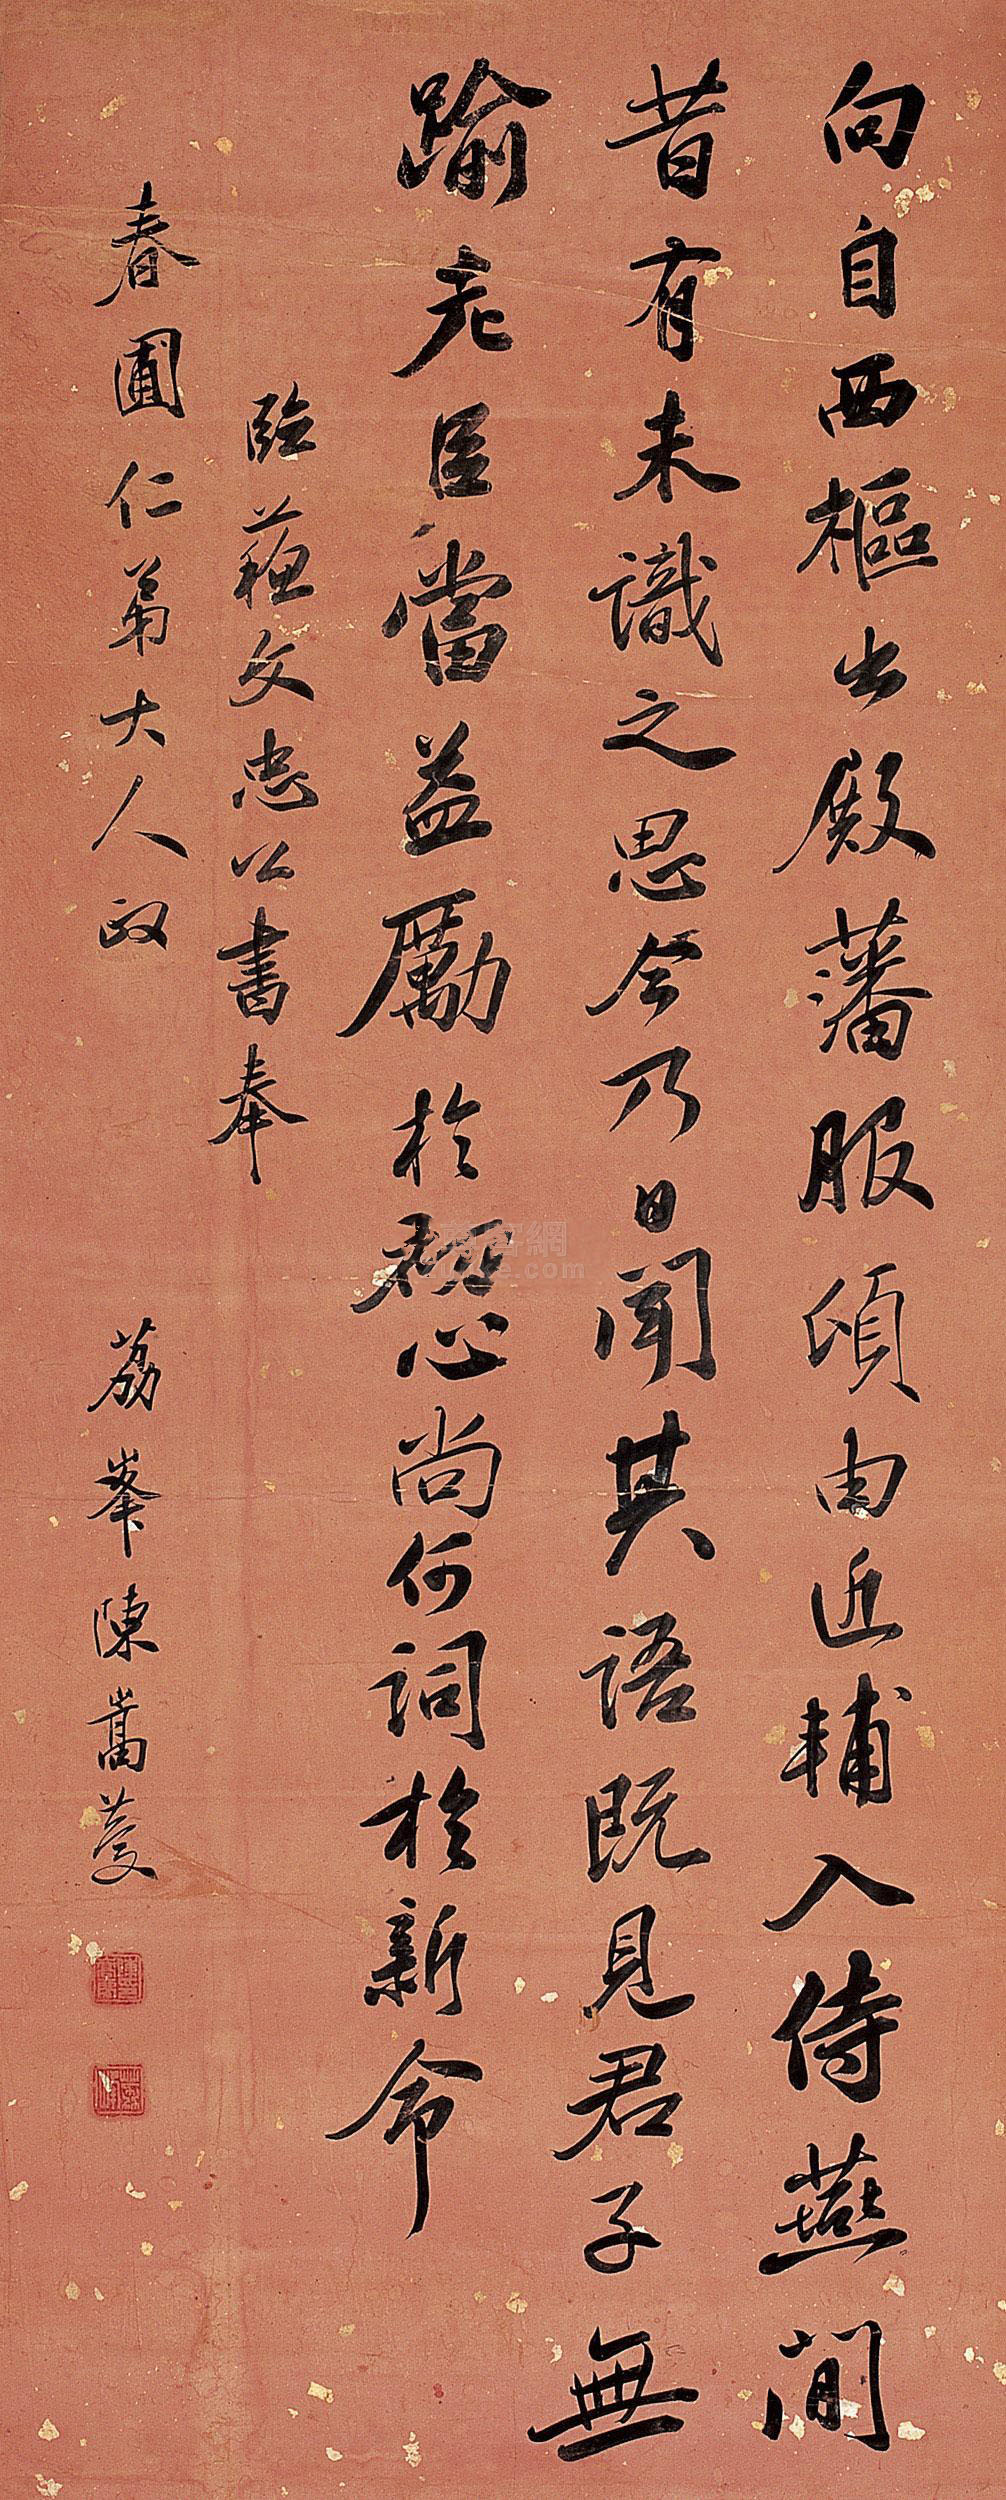 向自西樞出殿藩服頃由近輔入侍燕閒
昔有未識之思今乃日聞其語既見君子無
踰老臣當益勵於壯心尚何詞於新命
臨蘇文忠公書奉
春圃仁弟大人政
荔峯陳嵩慶